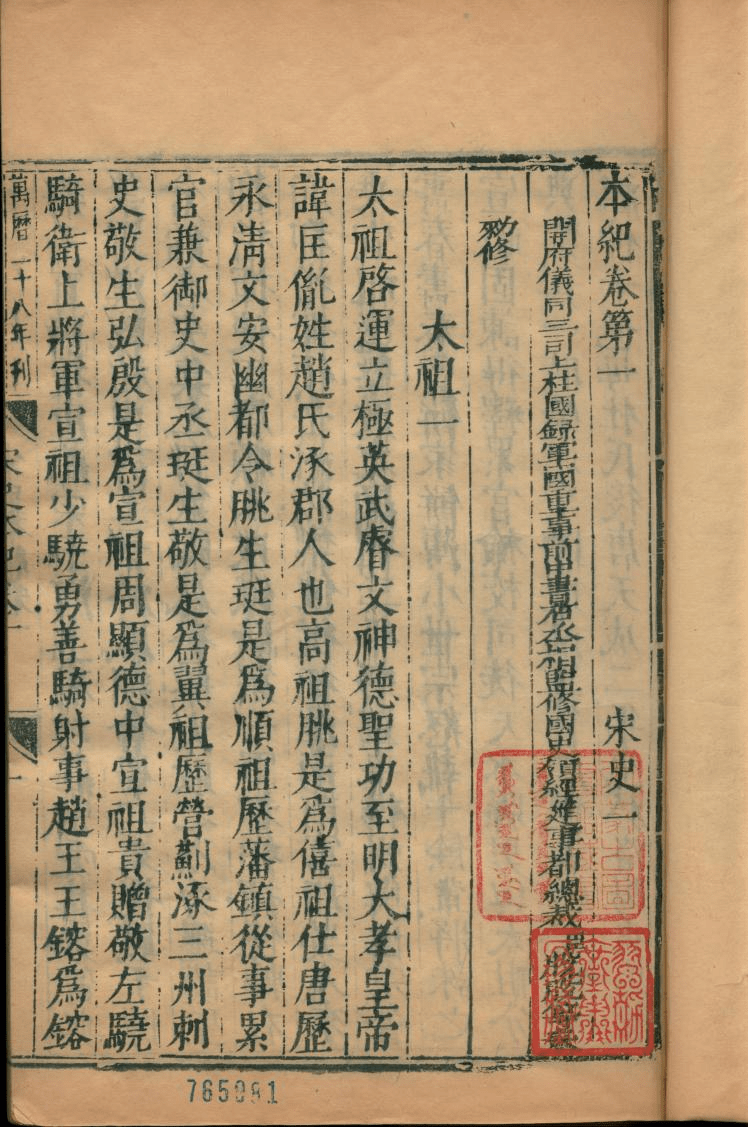 本紀卷第一 宋史一
開府儀同三司上柱國録軍國重事前中書右丞相監修國史領經筵事都總裁
勑修
太祖一
太祖啓運立極英武睿文神德聖功至明大孝皇帝
諱匡胤姓趙氏涿郡人也高祖朓是爲僖祖仕唐歷
永清文安幽都令朓生珽是爲順祖歷藩鎮從事累
官兼御史中丞珽生敬是爲翼祖歷營薊涿三州刺
史敬生弘殷是爲宣祖周顯德中宣祖貴贈敬左驍
騎衛上將軍宣祖少驍勇善騎射事趙王王鎔爲鎔
萬曆二十八年刊 宋史本紀卷一 一
765091